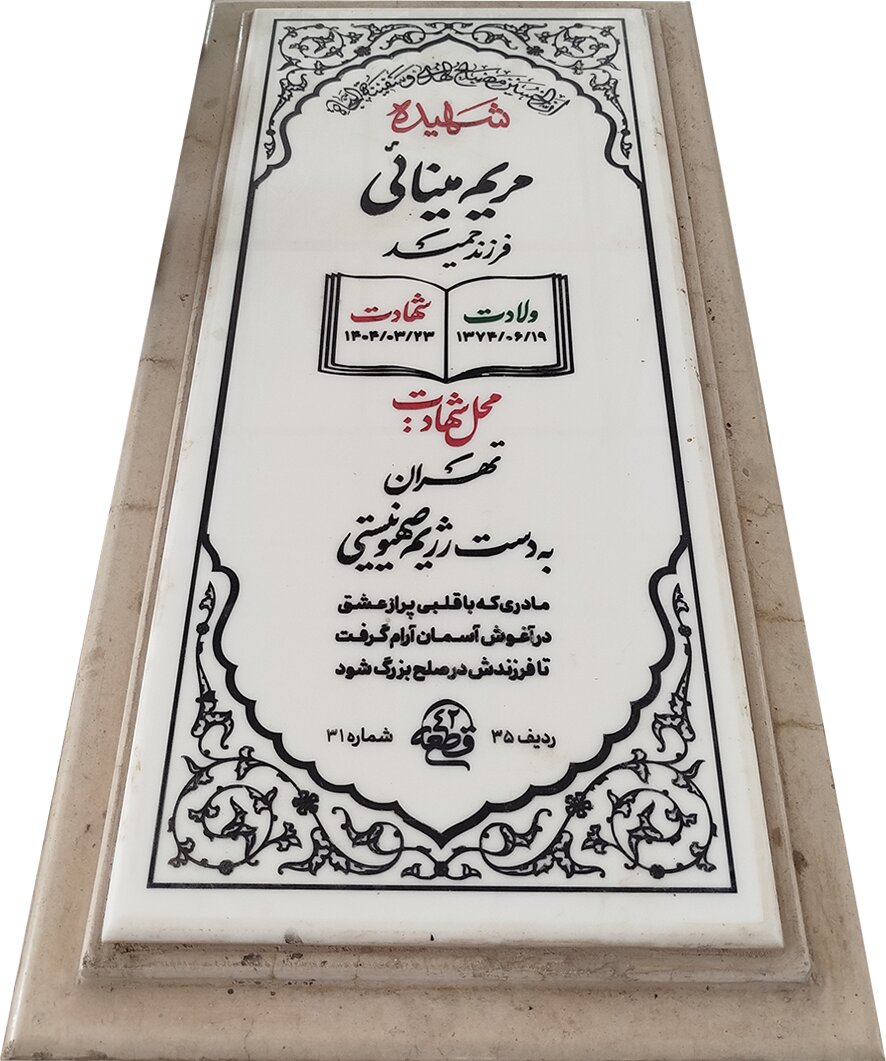 ان الحسین مصباح الهدی و سفینة النجاة
شهیده
مریم مینائی
فرزند حمید
ولادت
۱۳۷۴/۰۶/۱۹
شهادت
۱۴۰۴/۰۳/۲۳
محل شهادت:
تهران
به دست رژیم صهیونیستی
مادری که با قلبی پر از عشق
در آغوش آسمان آرام گرفت
تا فرزندش در صلح بزرگ شود
ردیف ۳۵ قطعه ۴۲ شماره ۳۱